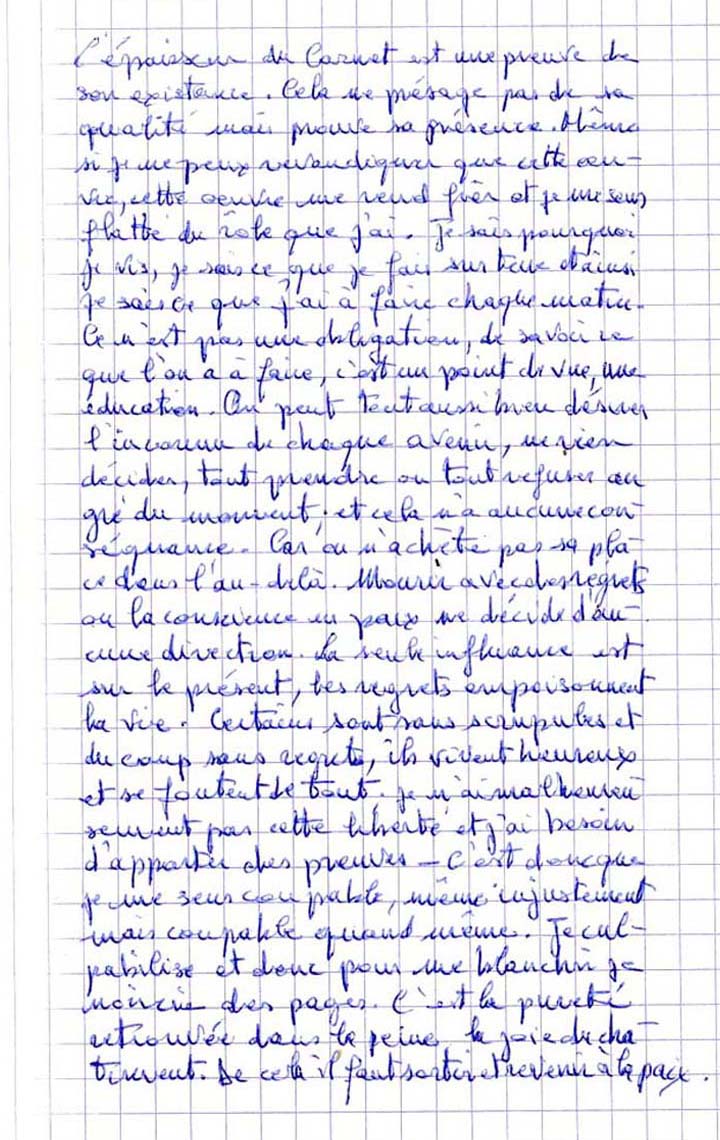 L'épaisseur du Carnet est une preuve de
son existence. Cela ne présage pas de sa
qualité mais prouve sa présence. Même
si je ne peux revendiquer que cette œu-
vre, cette oeuvre me rend fier et je me sens
flatté du rôle que j'ai. Je sais pourquoi
je vis, je sais ce que je fais sur terre et ainsi
je sais ce que j'ai à faire chaque matin.
Ce n'est pas une obligation, de savoir ce
que l'on a à faire, c'est un point de vue, une
éducation. On peut tout aussi bien désirer
l'inconnu de chaque avenir, ne rien
décider, tout prendre ou tout refuser au
gré du moment ; et cela n'a aucune con-
séquance. Car on n'achète pas sa pla-
ce dans l'au-delà. Mourir avec des regrets
ou la conscience en paix ne décide d'au-
cune direction. La seule influance est
sur le présent, les regrets empoisonnent
la vie. Certains sont sans scrupules et
du coup sans regrets, ils vivent heureux
et se foutent de tout. je n'ai malheureu-
sement pas cette liberté et j'ai besoin
d'apporter des preuves - C'est donc que
je me sens coupable, même injustement
mais coupable quand même. Je cul-
pabilise et donc pour me blanchir je
noircie des pages. C'est la pureté
retrouvée dans la peine, la joie du châ-
timent. De cela il faut sortir et revenir à la paix.